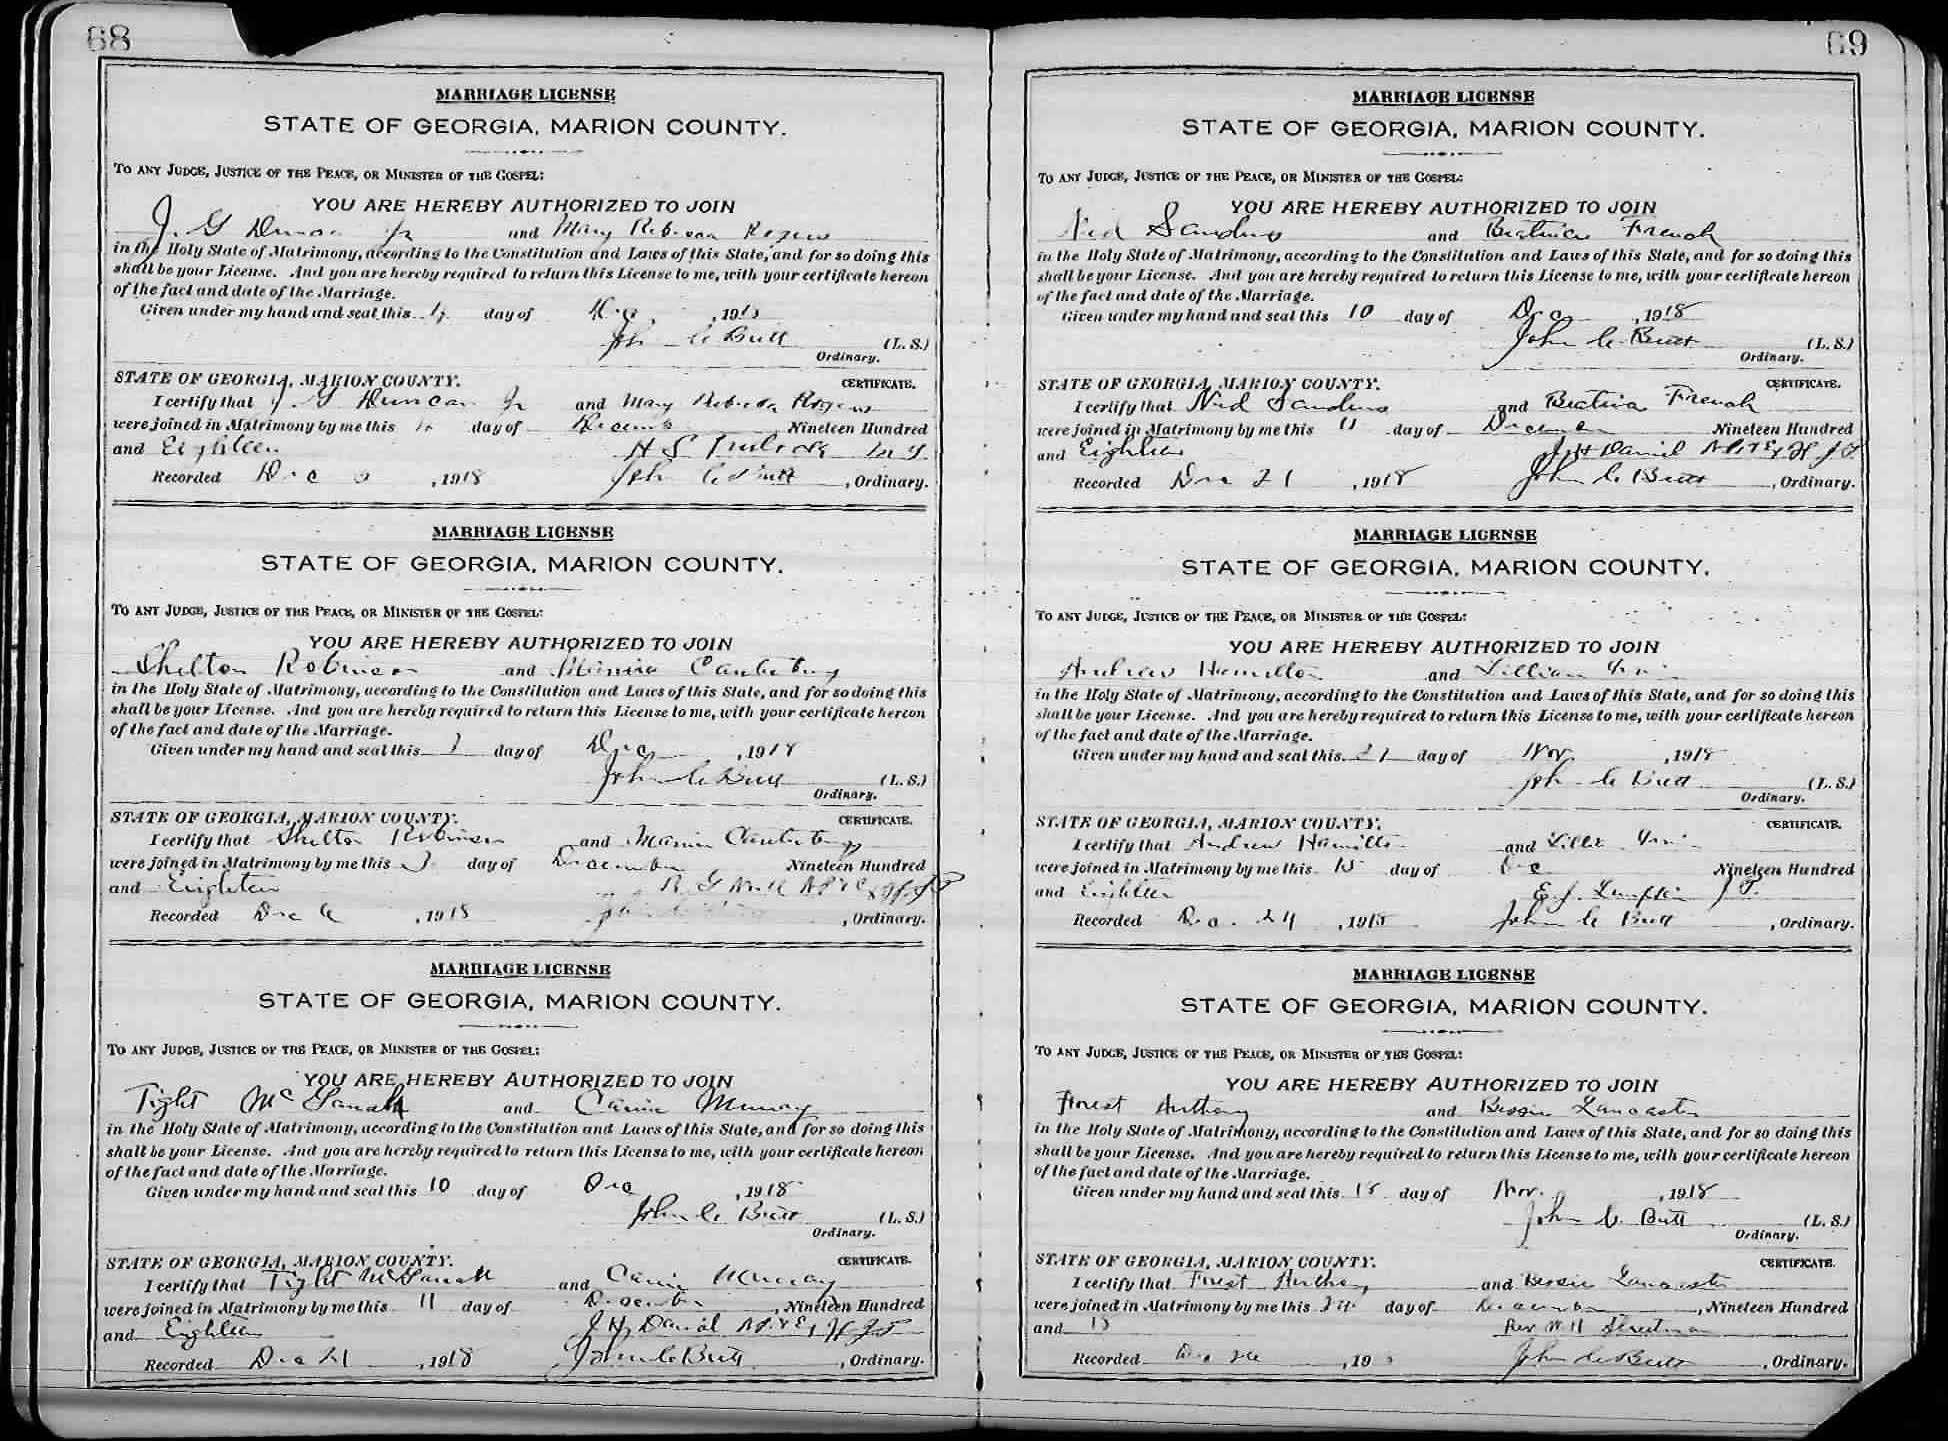 68
MARRIAGE LICENSE
STATE OF GEORGIA, MARION COUNTY.
TO ANY JUDGE, JUSTICE OF THE PEACE, OR MINISTER OF THE GOSPEL:
YOU ARE HEREBY AUTHORIZED TO JOIN
J. G Duncan Jr and Mary Rebecca Rogers
in the Holy State of Matrimony, according to the Constitution and Laws of this State, and for so doing this
shall be your License. And you are hereby required to return this License to me, with your certificate hereon
of the fact and date of the Marriage.
Given under my hand and seal this day of Dec , 1918
John C Butt (L. S.)
Ordinary.
STATE OF GEORGIA, MARION COUNTY. CERTIFICATE.
I certify that J. G Duncan Jr and Mary Rebecca Rogers
were joined in Matrimony by me this day of December Nineteen Hundred
and Eighteen H S M G
Recorded Dec , 1918 John C Butt , Ordinary.
MARRIAGE LICENSE
STATE OF GEORGIA, MARION COUNTY.
TO ANY JUDGE, JUSTICE OF THE PEACE, OR MINISTER OF THE GOSPEL:
YOU ARE HEREBY AUTHORIZED TO JOIN
Shelton Robinson and Canterbury
in the Holy State of Matrimony, according to the Constitution and Laws of this State, and for so doing this
shall be your License. And you are hereby required to return this License to me, with your certificate hereon
of the fact and date of the Marriage.
Given under my hand and seal this 3 day of Dec , 1918
John C Butt (L. S.)
Ordinary.
STATE OF GEORGIA, MARION COUNTY. CERTIFICATE.
I certify that Shelton Robinson and Canterbury
were joined in Matrimony by me this 3 day of December Nineteen Hundred
and Eighteen R G
Recorded Dec 6 , 1918 , Ordinary.
MARRIAGE LICENSE
STATE OF GEORGIA, MARION COUNTY.
TO ANY JUDGE, JUSTICE OF THE PEACE, OR MINISTER OF THE GOSPEL:
YOU ARE HEREBY AUTHORIZED TO JOIN
Tight and Carrie Murray
in the Holy State of Matrimony, according to the Constitution and Laws of this State, and for so doing this
shall be your License. And you are hereby required to return this License to me, with your certificate hereon
of the fact and date of the Marriage.
Given under my hand and seal this 10 day of Dec , 1918
John C. Butt (L. S.)
Ordinary.
STATE OF GEORGIA, MARION COUNTY. CERTIFICATE.
I certify that Tight and Carrie Murray
were joined in Matrimony by me this 11 day of December , Nineteen Hundred
and Eighteen J H Daniel
Recorded Dec 21 , 1918 John C Butt , Ordinary.
69
MARRIAGE LICENSE
STATE OF GEORGIA, MARION COUNTY.
TO ANY JUDGE, JUSTICE OF THE PEACE, OR MINISTER OF THE GOSPEL:
YOU ARE HEREBY AUTHORIZED TO JOIN
Ned Sanders and Beatrice French
in the Holy State of Matrimony, according to the Constitution and Laws of this State, and for so doing this
shall be your License. And you are hereby required to return this License to me, with your certificate hereon
of the fact and date of the Marriage.
Given under my hand and seal this 10 day of Dec , 1918
John C. Butt (L. S.)
Ordinary.
STATE OF GEORGIA, MARION COUNTY. CERTIFICATE.
I certify that Ned Sanders and Beatrice French
were joined in Matrimony by me this 11 day of December Nineteen Hundred
and Eighteen J H Daniel
Recorded Dec 21 , 1918 John C Butt , Ordinary.
MARRIAGE LICENSE
STATE OF GEORGIA, MARION COUNTY.
TO ANY JUDGE, JUSTICE OF THE PEACE, OR MINISTER OF THE GOSPEL:
YOU ARE HEREBY AUTHORIZED TO JOIN
Andrew Hamilton and Lillian
in the Holy State of Matrimony, according to the Constitution and Laws of this State, and for so doing this
shall be your License. And you are hereby required to return this License to me, with your certificate hereon
of the fact and date of the Marriage.
Given under my hand and seal this 21 day of Nov , 1918
John C Butt (L. S.)
Ordinary.
STATE OF GEORGIA, MARION COUNTY. CERTIFICATE.
I certify that Andrew Hamilton and
were joined in Matrimony by me this 15 day of Dec Nineteen Hundred
and Eighteen E. J. Lumpkin J P.
Recorded Dec. 24 , 1918 John C Butt , Ordinary.
MARRIAGE LICENSE
STATE OF GEORGIA, MARION COUNTY.
TO ANY JUDGE, JUSTICE OF THE PEACE, OR MINISTER OF THE GOSPEL:
YOU ARE HEREBY AUTHORIZED TO JOIN
Forest Anthony and Bessie Lancaster
in the Holy State of Matrimony, according to the Constitution and Laws of this State, and for so doing this
shall be your License. And you are hereby required to return this License to me, with your certificate hereon
of the fact and date of the Marriage.
Given under my hand and seal this 18 day of Nov. , 1918
John C. Butt (L. S.)
Ordinary.
STATE OF GEORGIA, MARION COUNTY. CERTIFICATE.
I certify that Forest Anthony and Bessie Lancaster
were joined in Matrimony by me this day of December , Nineteen Hundred
and 18 Rev W H Streetman
Recorded Dec 26 , 19 John C Butt , Ordinary.